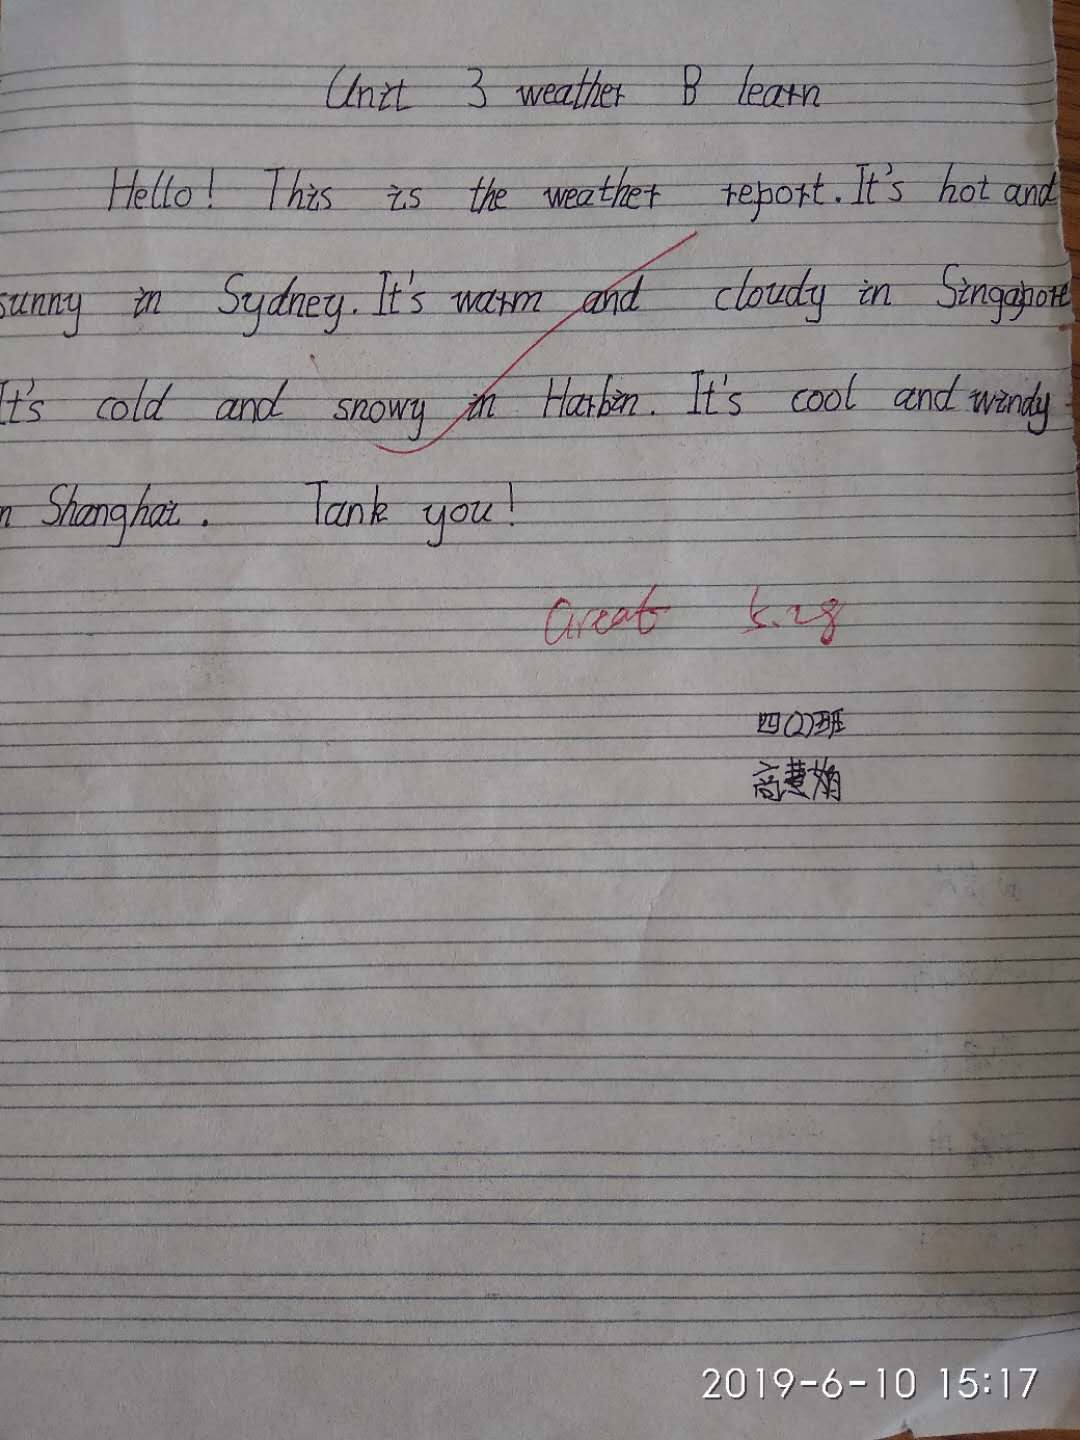 Unit 3 weather B learn
Hello! This is the weather report. It's hot and
sunny in Sydney. It's warm and cloudy in Singapore
It's cold and snowy in Harbin. It's cool and windy
n Shanghai. Tank you!
Great 5.28
四(2)班
高慧娟
2019-6-10 15:17